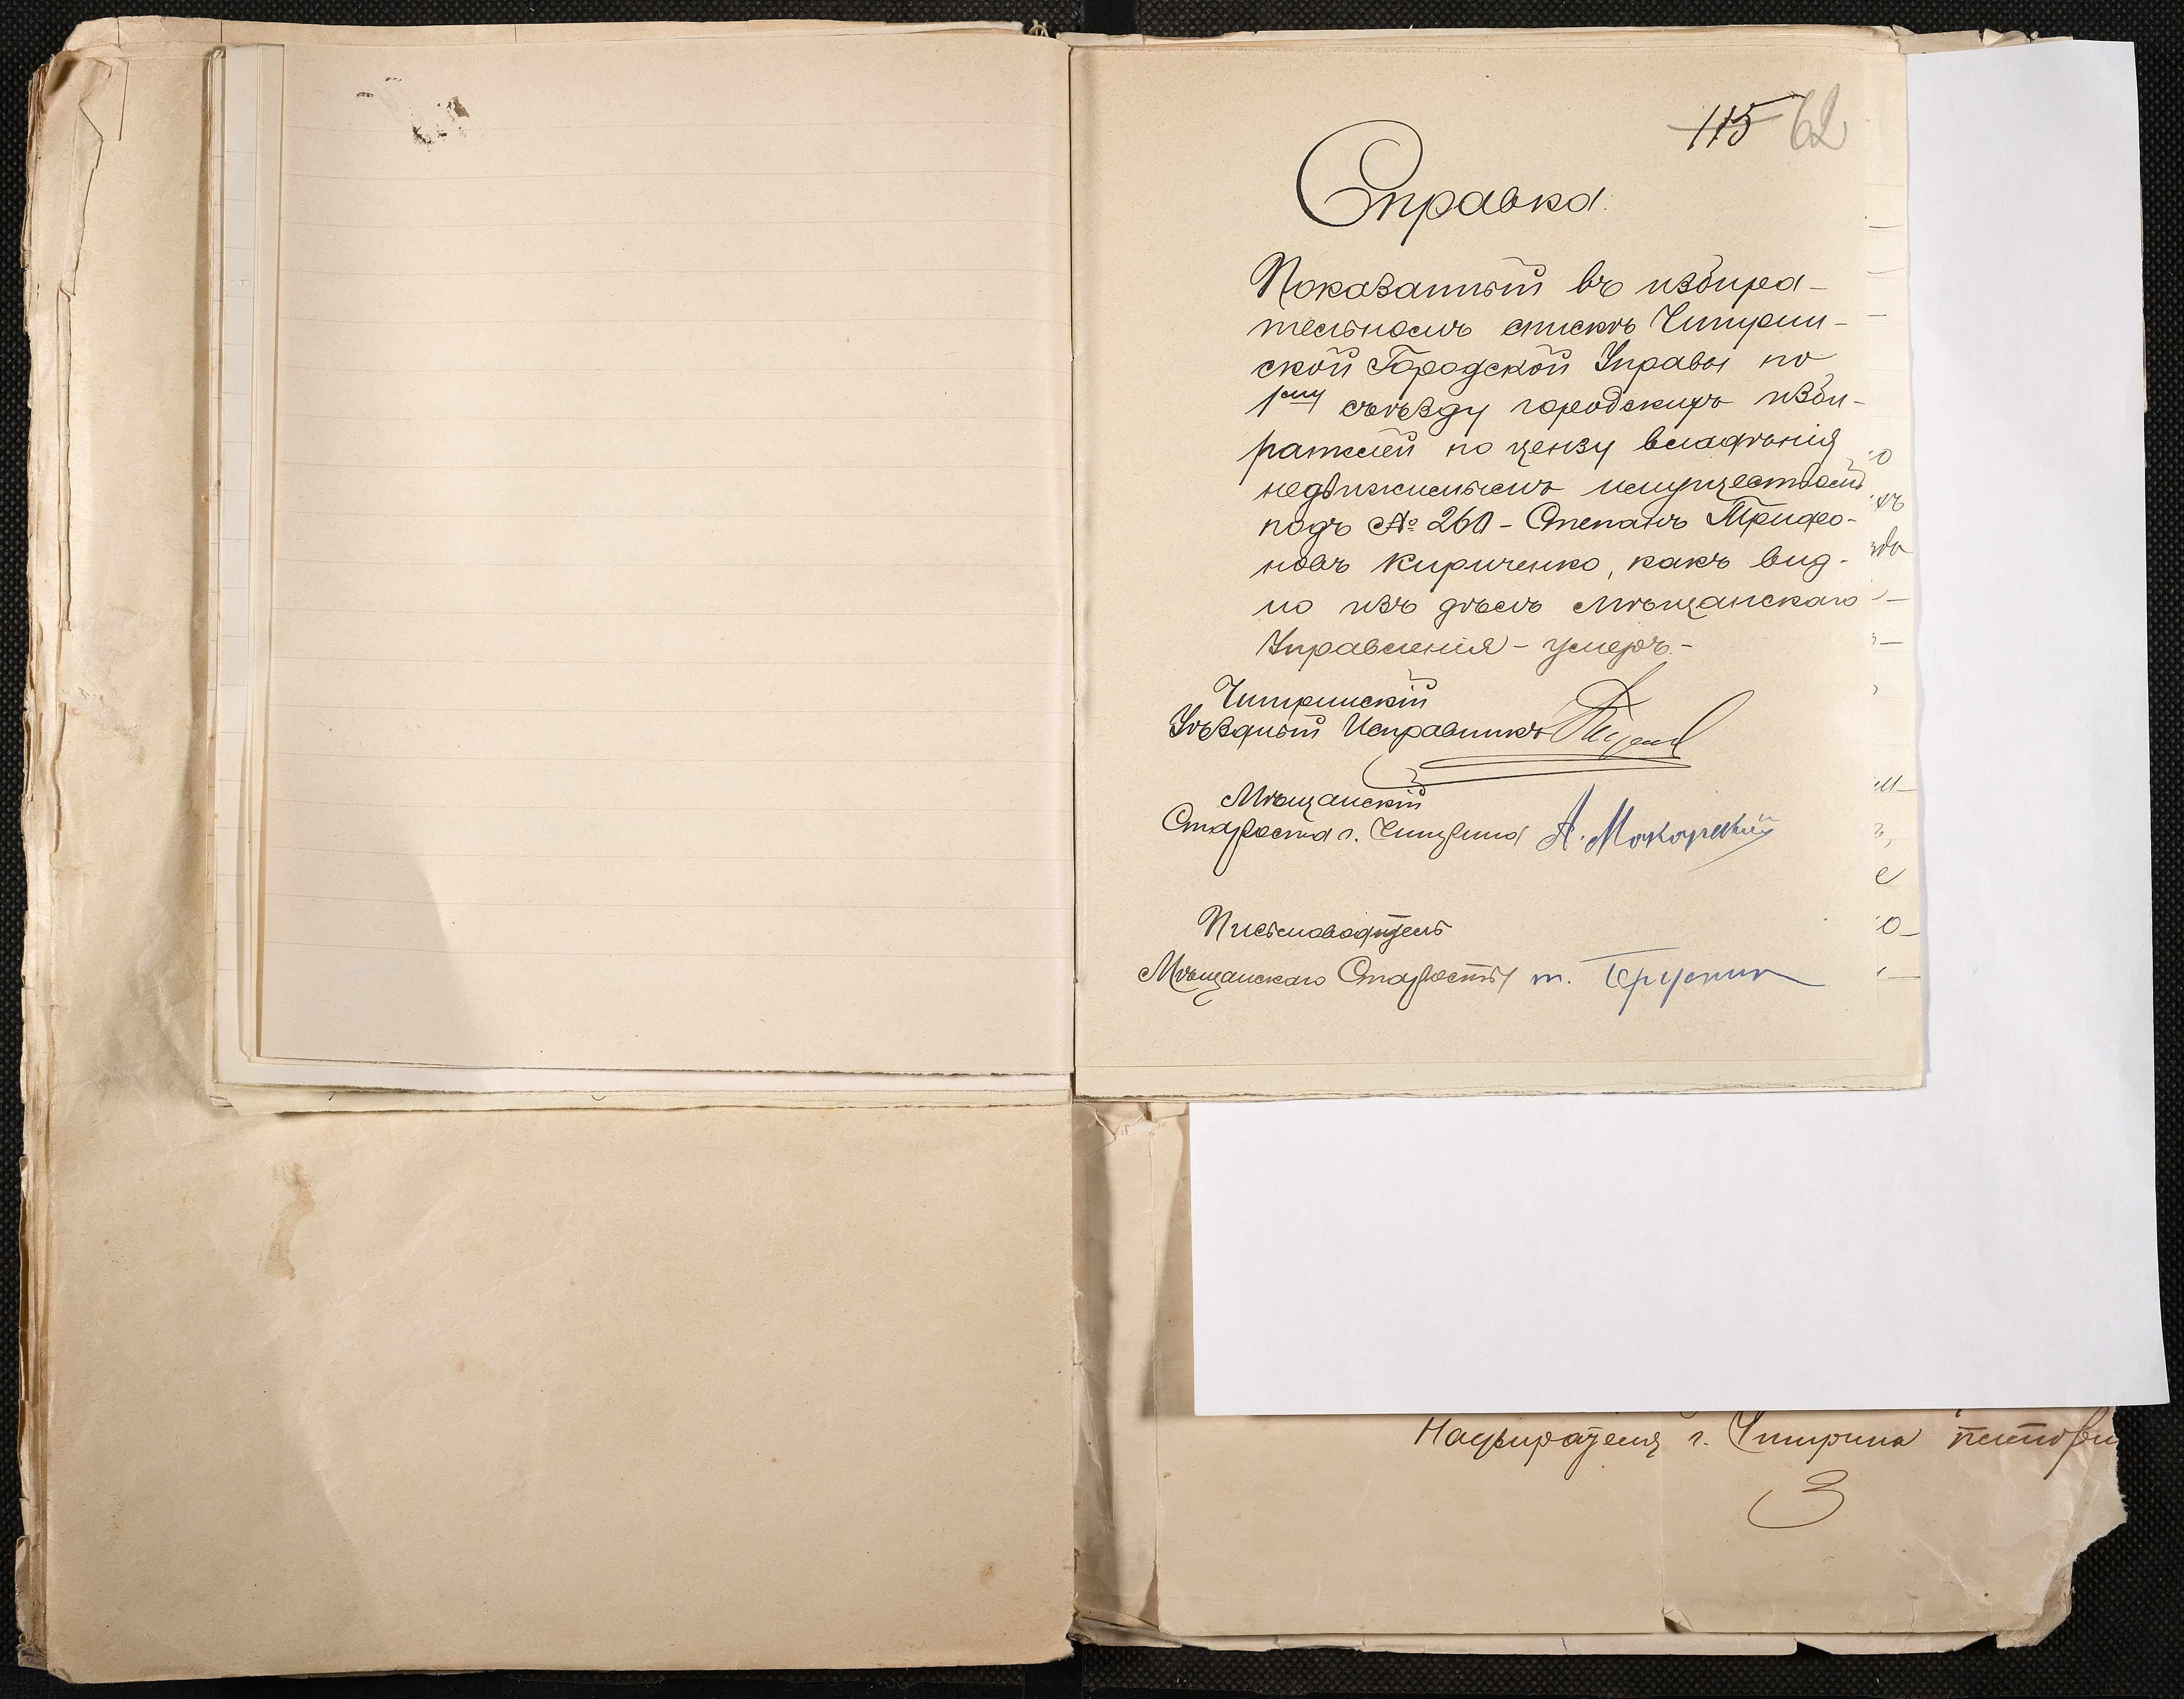 115 62
Справка.
Показанный въ избира-
тельномъ списке Чигрин-
ской Городской Управы по
1му съѣзду городскихъ изби-
рателей по цензу владѣнія
недвижимымъ имуществомъ
подъ № 260 - Степанъ Трифо-
новъ Кириченко, какъ вид-
но изъ дѣлъ Мѣщанскаго
Управленія - умеръ. -
Чигринскій
Уѣздный Исправникъ
Мѣщанскій
Староста г. Чигрина А. Макаревич
Письмоводитель
Мѣщанскаго Старосты т.
Надзирателя г. Чигрина
3